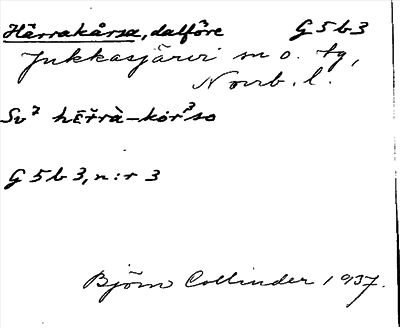 Härrakårsa, dalföre G5b3
Jukkasjärvi sn o. tg,
Norrb. l.
G5b3, n:r 3
Björn Collinder 1937.